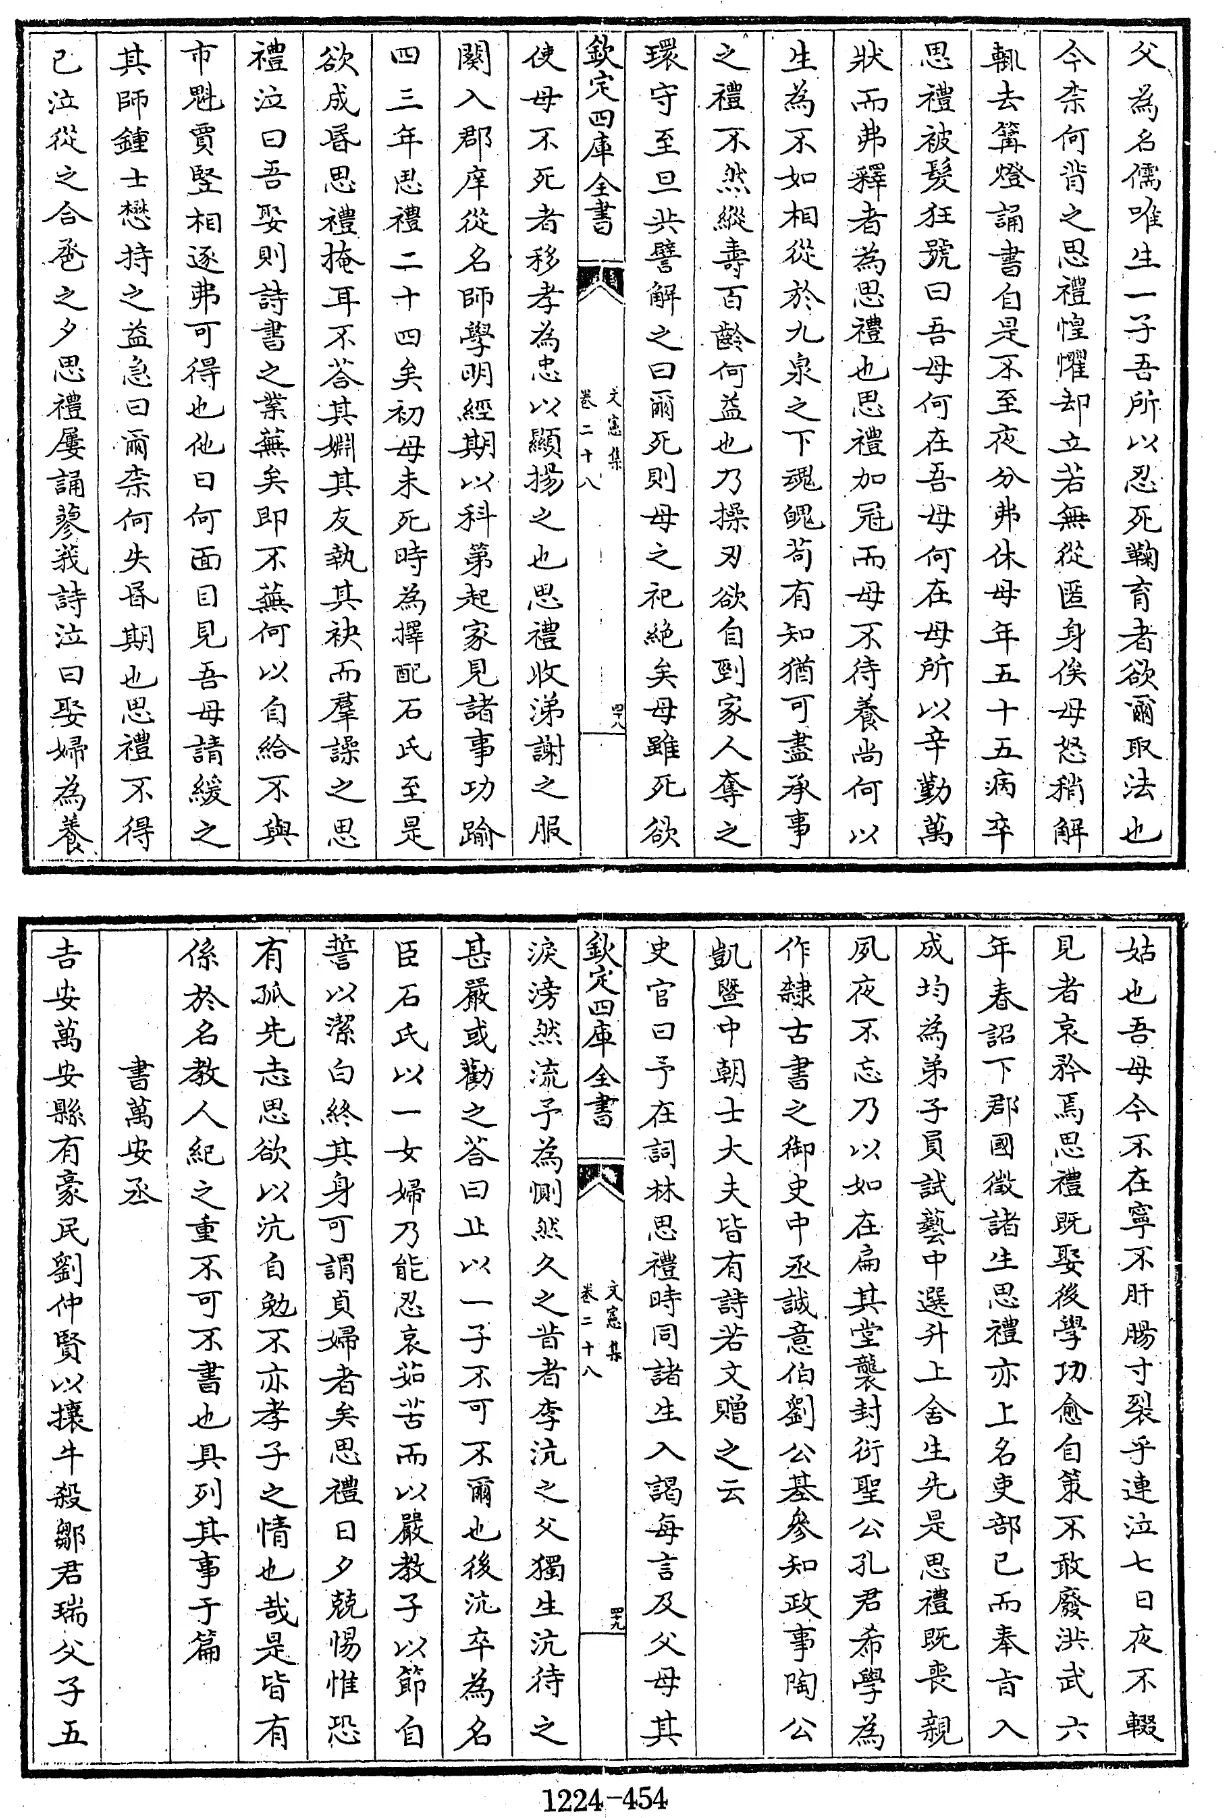 父為名儒唯生一子吾所以忍死鞠育者欲爾取法也
今柰何背之思禮惶懼却立若無從匿身俟母怒稍解
輒去篝燈誦書自是不至夜分弗休母年五十五病卒
思禮被髮狂號曰吾母何在吾母何在母所以辛勤萬
狀而弗釋者為思禮也思禮加冠而母不待養尚何以
生為不如相從於九泉之下魂魄苟有知猶可盡承事
之禮不然縱壽百齡何益也乃操刃欲自剄家人奪之
環守至旦共譬解之曰爾死則母之祀絶矣母雖死欲
欽定四庫全書
文憲集
卷二十八
四十八
使母不死者移孝為忠以顯揚之也思禮收涕謝之服
闋入郡庠從名師學明經期以科第起家見諸事功踰
四三年思禮二十四矣初母未死時為擇配石氏至是
欲成昏思禮掩耳不荅其婣其友執其袂而羣譟之思
禮泣曰吾娶則詩書之業蕪矣即不蕪何以自給不與
市魁賈豎相逐弗可得也他日何面目見吾母請緩之
其師鍾士懋持之益急曰爾柰何失昏期也思禮不得
已泣從之合巹之夕思禮屢誦蓼莪詩泣曰娶婦為養
姑也吾母今不在寧不肝腸寸裂乎連泣七日夜不輟
見者哀矜焉思禮既娶後學功愈自策不敢廢洪武六
年春詔下郡國徵諸生思禮亦上名吏部已而奉旨入
成均為弟子員試藝中選升上舍生先是思禮既喪親
夙夜不忘乃以如在扁其堂襲封衍聖公孔君希學為
作隸古書之御史中丞誠意伯劉公基參知政事陶公
凱暨中朝士大夫皆有詩若文贈之云
史官曰予在詞林思禮時同諸生入謁每言及父母其
欽定四庫全書
文憲集
卷二十八
四十九
淚滂然流予為惻然久之昔者李沆之父獨生沆待之
甚嚴或勸之荅曰止以一子不可不爾也後沆卒為名
臣石氏以一女婦乃能忍哀茹苦而以嚴教子以節自
誓以潔白終其身可謂貞婦者矣思禮日夕兢惕惟恐
有孤先志思欲以沆自勉不亦孝子之情也哉是皆有
係於名教人紀之重不可不書也具列其事于篇
書萬安丞
吉安萬安縣有豪民劉仲賢以攘牛殺鄒君瑞父子五
1224-454